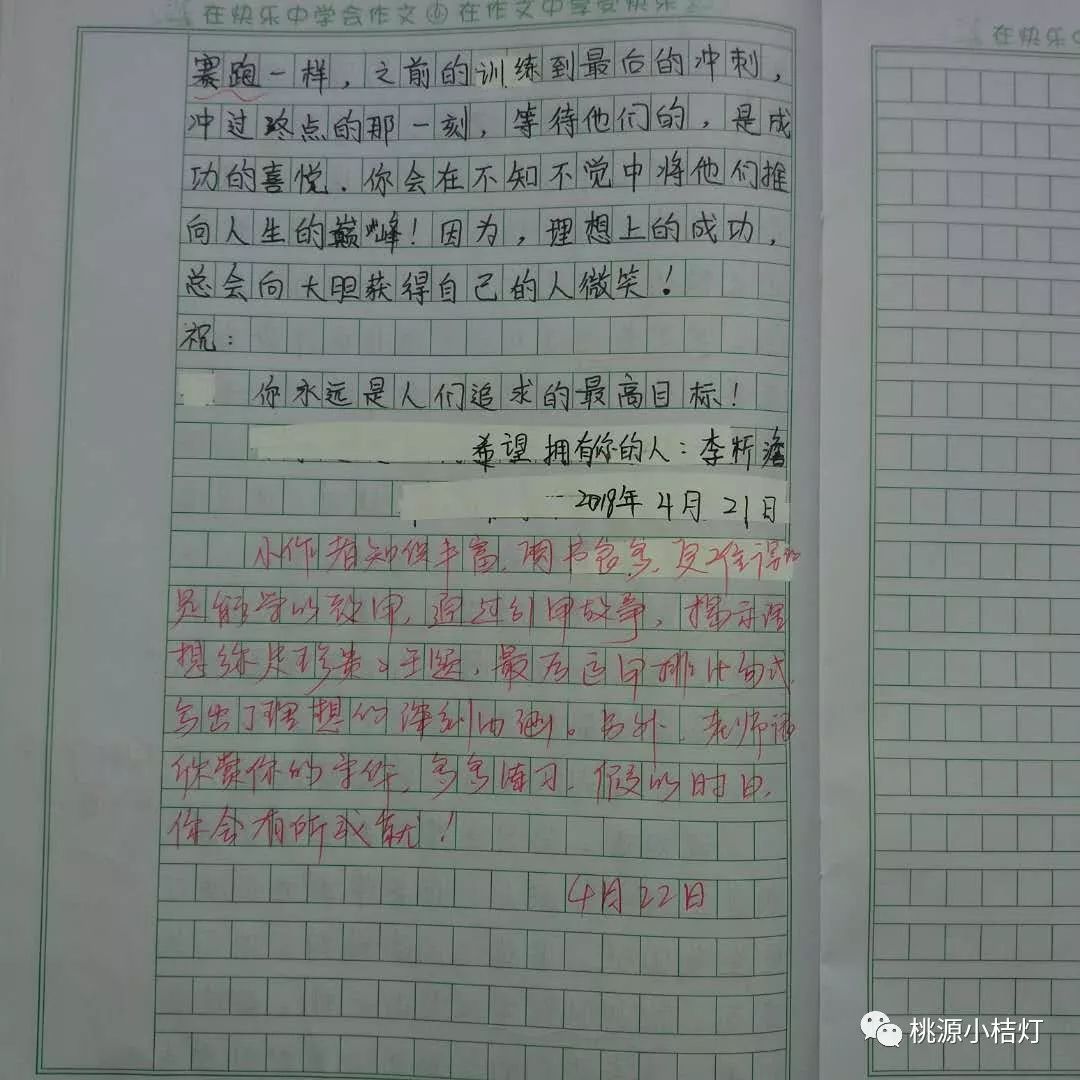 在快乐中学会作文 在作文中享受快乐
在快乐中
赛跑一样，之前的训练到最后的冲刺，
冲过终点的那一刻，等待他们的，是成
功的喜悦．你会在不知不觉中将他们推
向人生的巅峰！因为，理想上的成功，
总会向大胆获得自己的人微笑！
祝：
你永远是人们追求的最高目标！
希望拥有你的人：李昕澹
2018年4月21日
小作者知识丰富，阅书多多，更难得的
是能学以致用，通过引用故事，揭示理
想弥足珍贵的主题，最后运用排比句式，
写出了理想的深刻内涵。另外，老师请
你常你的字体，多多练习，假以时日，
你会有所成就！
4月22日
桃源小桔灯